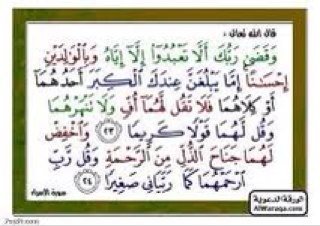 قال الله تعالى :
وَقَضَىٰ رَبُّكَ أَلَّا تَعْبُدُوٓا۟ إِلَّآ إِيَّاهُ وَبِٱلْوَٰلِدَيْنِ
إِحْسَـٰنًا إِمَّا يَبْلُغَنَّ عِندَكَ ٱلْكِبَرَ أَحَدُهُمَآ
أَوْ كِلَاهُمَا فَلَا تَقُل لَّهُمَآ أُفٍّ وَلَا نَنْهَرْهُمَا
وَقُل لَّهُمَا قَوْلًا كَرِيمًا ٢٣ وَٱخْفِضْ
لَهُمَا جَنَاحَ ٱلذُّلِّ مِنَ ٱلرَّحْمَةِ وَقُل رَّبِّ
ٱرْحَمْهُمَا كَمَا رَبَّيَانِى صَغِيرًا ٢٤
سورة الإسراء
الورقة الدعوية
AlWaraqa.com